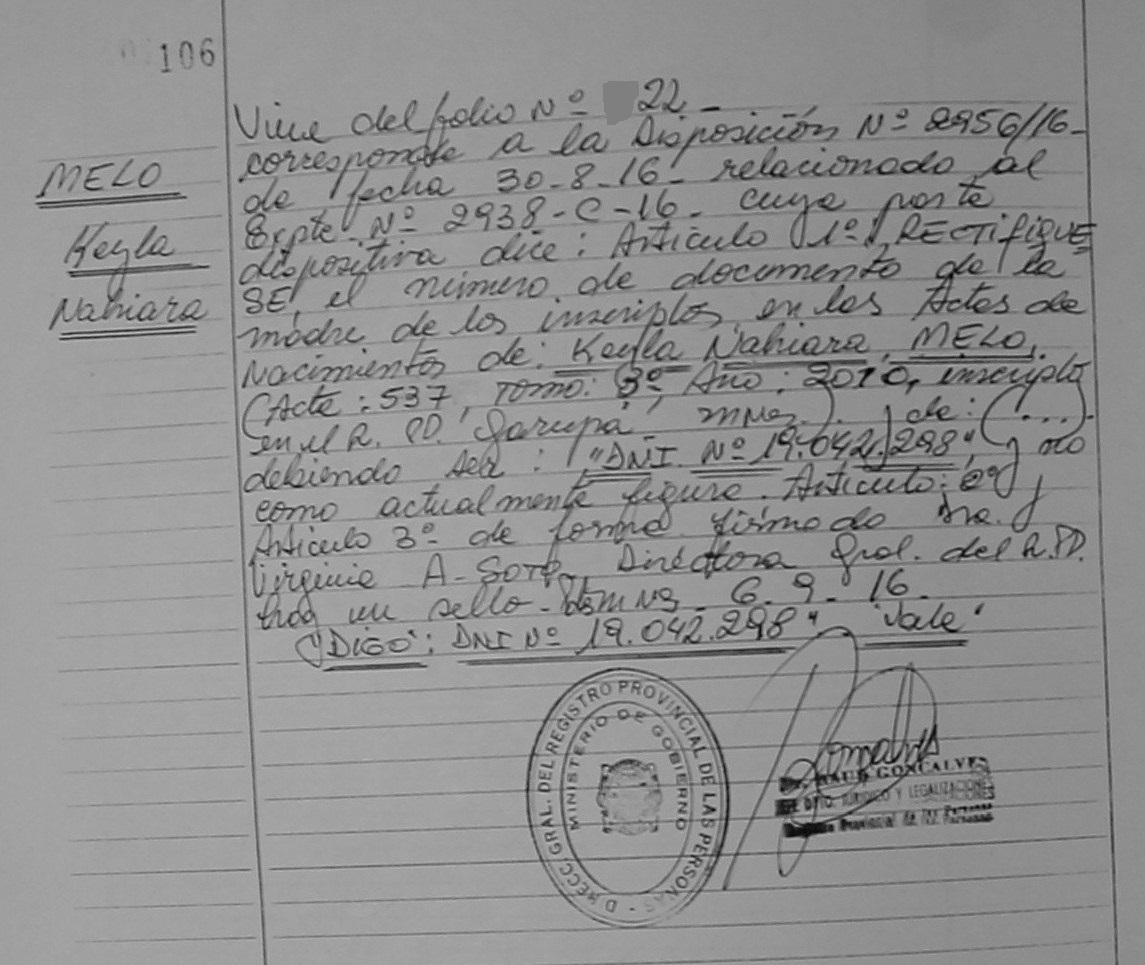 106
MELO
Keyla
Nahiara
Viene del folio Nº 22 -
corresponde a la Disposición Nº 2956/16-
de fecha 30-8-16- relacionado al
Expte. Nº 2938-C-16- cuya parte
dispositiva dice: Artículo 1º RECTIFIQUE
SE, el número de documento de la
madre de los inscriptos en las Actas de
Nacimientos de: Keyla Nahiara MELO,
(Acta: 537, Tomo: 3º, Año: 2010, inscripta
en el R. PD. Garupá Mnes). de: (...).
debiendo ser: "DNI Nº 19.042.298" y no
como actualmente figura. Artículo: 2º y
Artículo 3º de forma firmado Dra.
Virginia A- Soto Directora Gral. del R.PD.
hay un sello - 6-9-16-
"DIGO": DNI Nº 19.042.298" "Vale"
DIRECC. GRAL. DEL REGISTRO PROVINCIAL DE LAS PERSONAS -
MINISTERIO DE GOBIERNO
GONCALVES
DPTO. JURIDICO Y LEGALIZACIONES
Provincial de las Personas